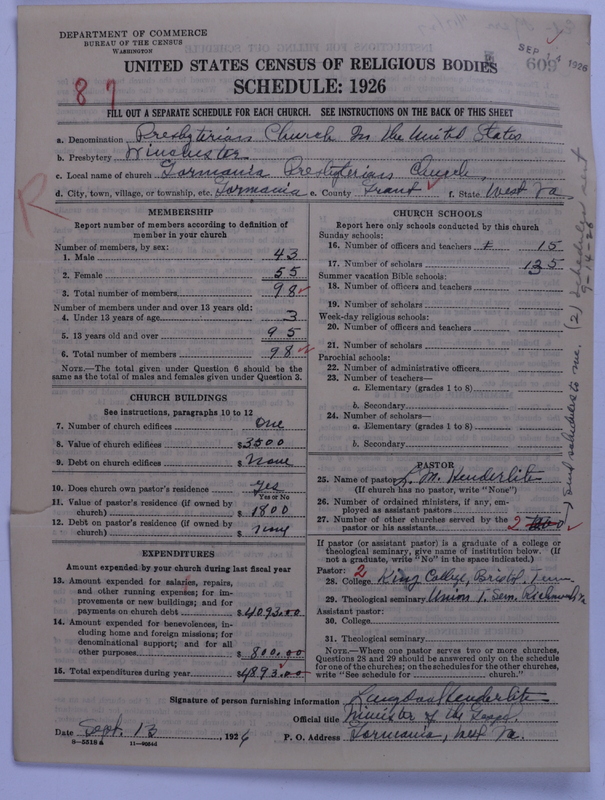 DEPARTMENT OF COMMERCE
BUREAU OF THE CENSUS
WASHINGTON
SEP 14 1926
609
UNITED STATES CENSUS OF RELIGIOUS BODIES
SCHEDULE: 1926
8 9
FILL OUT A SEPARATE SCHEDULE FOR EACH CHURCH. SEE INSTRUCTIONS ON THE BACK OF THIS SHEET
a. Denomination Presbyterian Church in the United States
b. Presbytery Winchester
c. Local name of church Gormania Presbyterian Church
d. City, town, village, or township, etc. Gormania e. County Grant f. State West Va
R
MEMBERSHIP
Report number of members according to definition of
member in your church
Number of members, by sex:
1. Male 43
2. Female 55
3. Total number of members 98
Number of members under and over 13 years old:
4. Under 13 years of age 3
5. 13 years old and over 95
6. Total number of members 98
NOTE.—The total given under Question 6 should be the
same as the total of males and females given under Question 3.
CHURCH BUILDINGS
See instructions, paragraphs 10 to 12
7. Number of church edifices One
8. Value of church edifices $3500
9. Debt on church edifices $ None
10. Does church own pastor's residence Yes
Yes or No
11. Value of pastor's residence (if owned by
church) $ 1800
12. Debt on pastor's residence (if owned by
church) $ None
EXPENDITURES
Amount expended by your church during last fiscal year
13. Amount expended for salaries, repairs,
and other running expenses; for im-
provements or new buildings; and for
payments on church debt $4093.00
14. Amount expended for benevolences, in-
cluding home and foreign missions; for
denominational support; and for all
other purposes $ 800.00
15. Total expenditures during year $4893.00
CHURCH SCHOOLS
Report here only schools conducted by this church
Sunday schools:
16. Number of officers and teachers 15
17. Number of scholars 135
Summer vacation Bible schools:
18. Number of officers and teachers
19. Number of scholars
Week-day religious schools:
20. Number of officers and teachers
21. Number of scholars
Parochial schools:
22. Number of administrative officers
23. Number of teachers—
a. Elementary (grades 1 to 8)
b. Secondary
24. Number of scholars—
a. Elementary (grades 1 to 8)
b. Secondary
PASTOR
25. Name of pastor L. M. Henderlite
(If church has no pastor, write "None")
26. Number of ordained ministers, if any, em-
ployed as assistant pastors
27. Number of other churches served by the
pastor or his assistants 2
If pastor (or assistant pastor) is a graduate of a college or
theological seminary, give name of institution below. (If
not a graduate, write "No" in the space indicated.)
Pastor: 2
28. College King College, Bristol, Tenn.
29. Theological seminary Union T. Sem. Richmond Va
Assistant pastor:
30. College
31. Theological seminary
NOTE.—Where one pastor serves two or more churches,
Questions 28 and 29 should be answered only on the schedule
for one of the churches; on the schedules for the other churches,
write "See schedule for church."
Signature of person furnishing information Henderlite
Official title Minister of the Gospel
Date Sept. 13, 1926 P. O. Address Gormania, West Va.
8—5318a 11—9064d
send schedules to me. (2) schedules sent
9-14-26